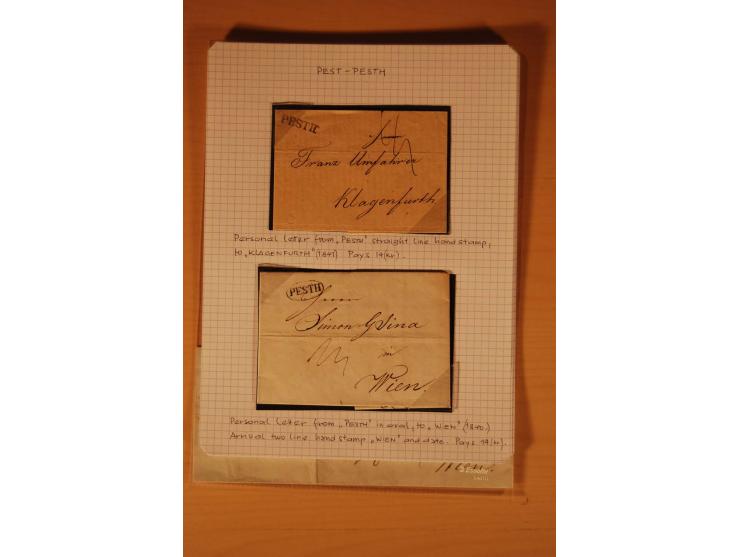 PEST - PESTH
PESTH
Franz Umfahrer
Klagenfurth
Personal letter from „PESTH" straight line handstamp,
to „KLAGENFURTH" (1841) Pays 14(kr).
PESTH
Simon G Sina
in
Wien.
Personal letter from „PESTH" in oval, to „WIEN" (1840.)
Arrival two line handstamp „WIEN" and date. Pays 14(kr).